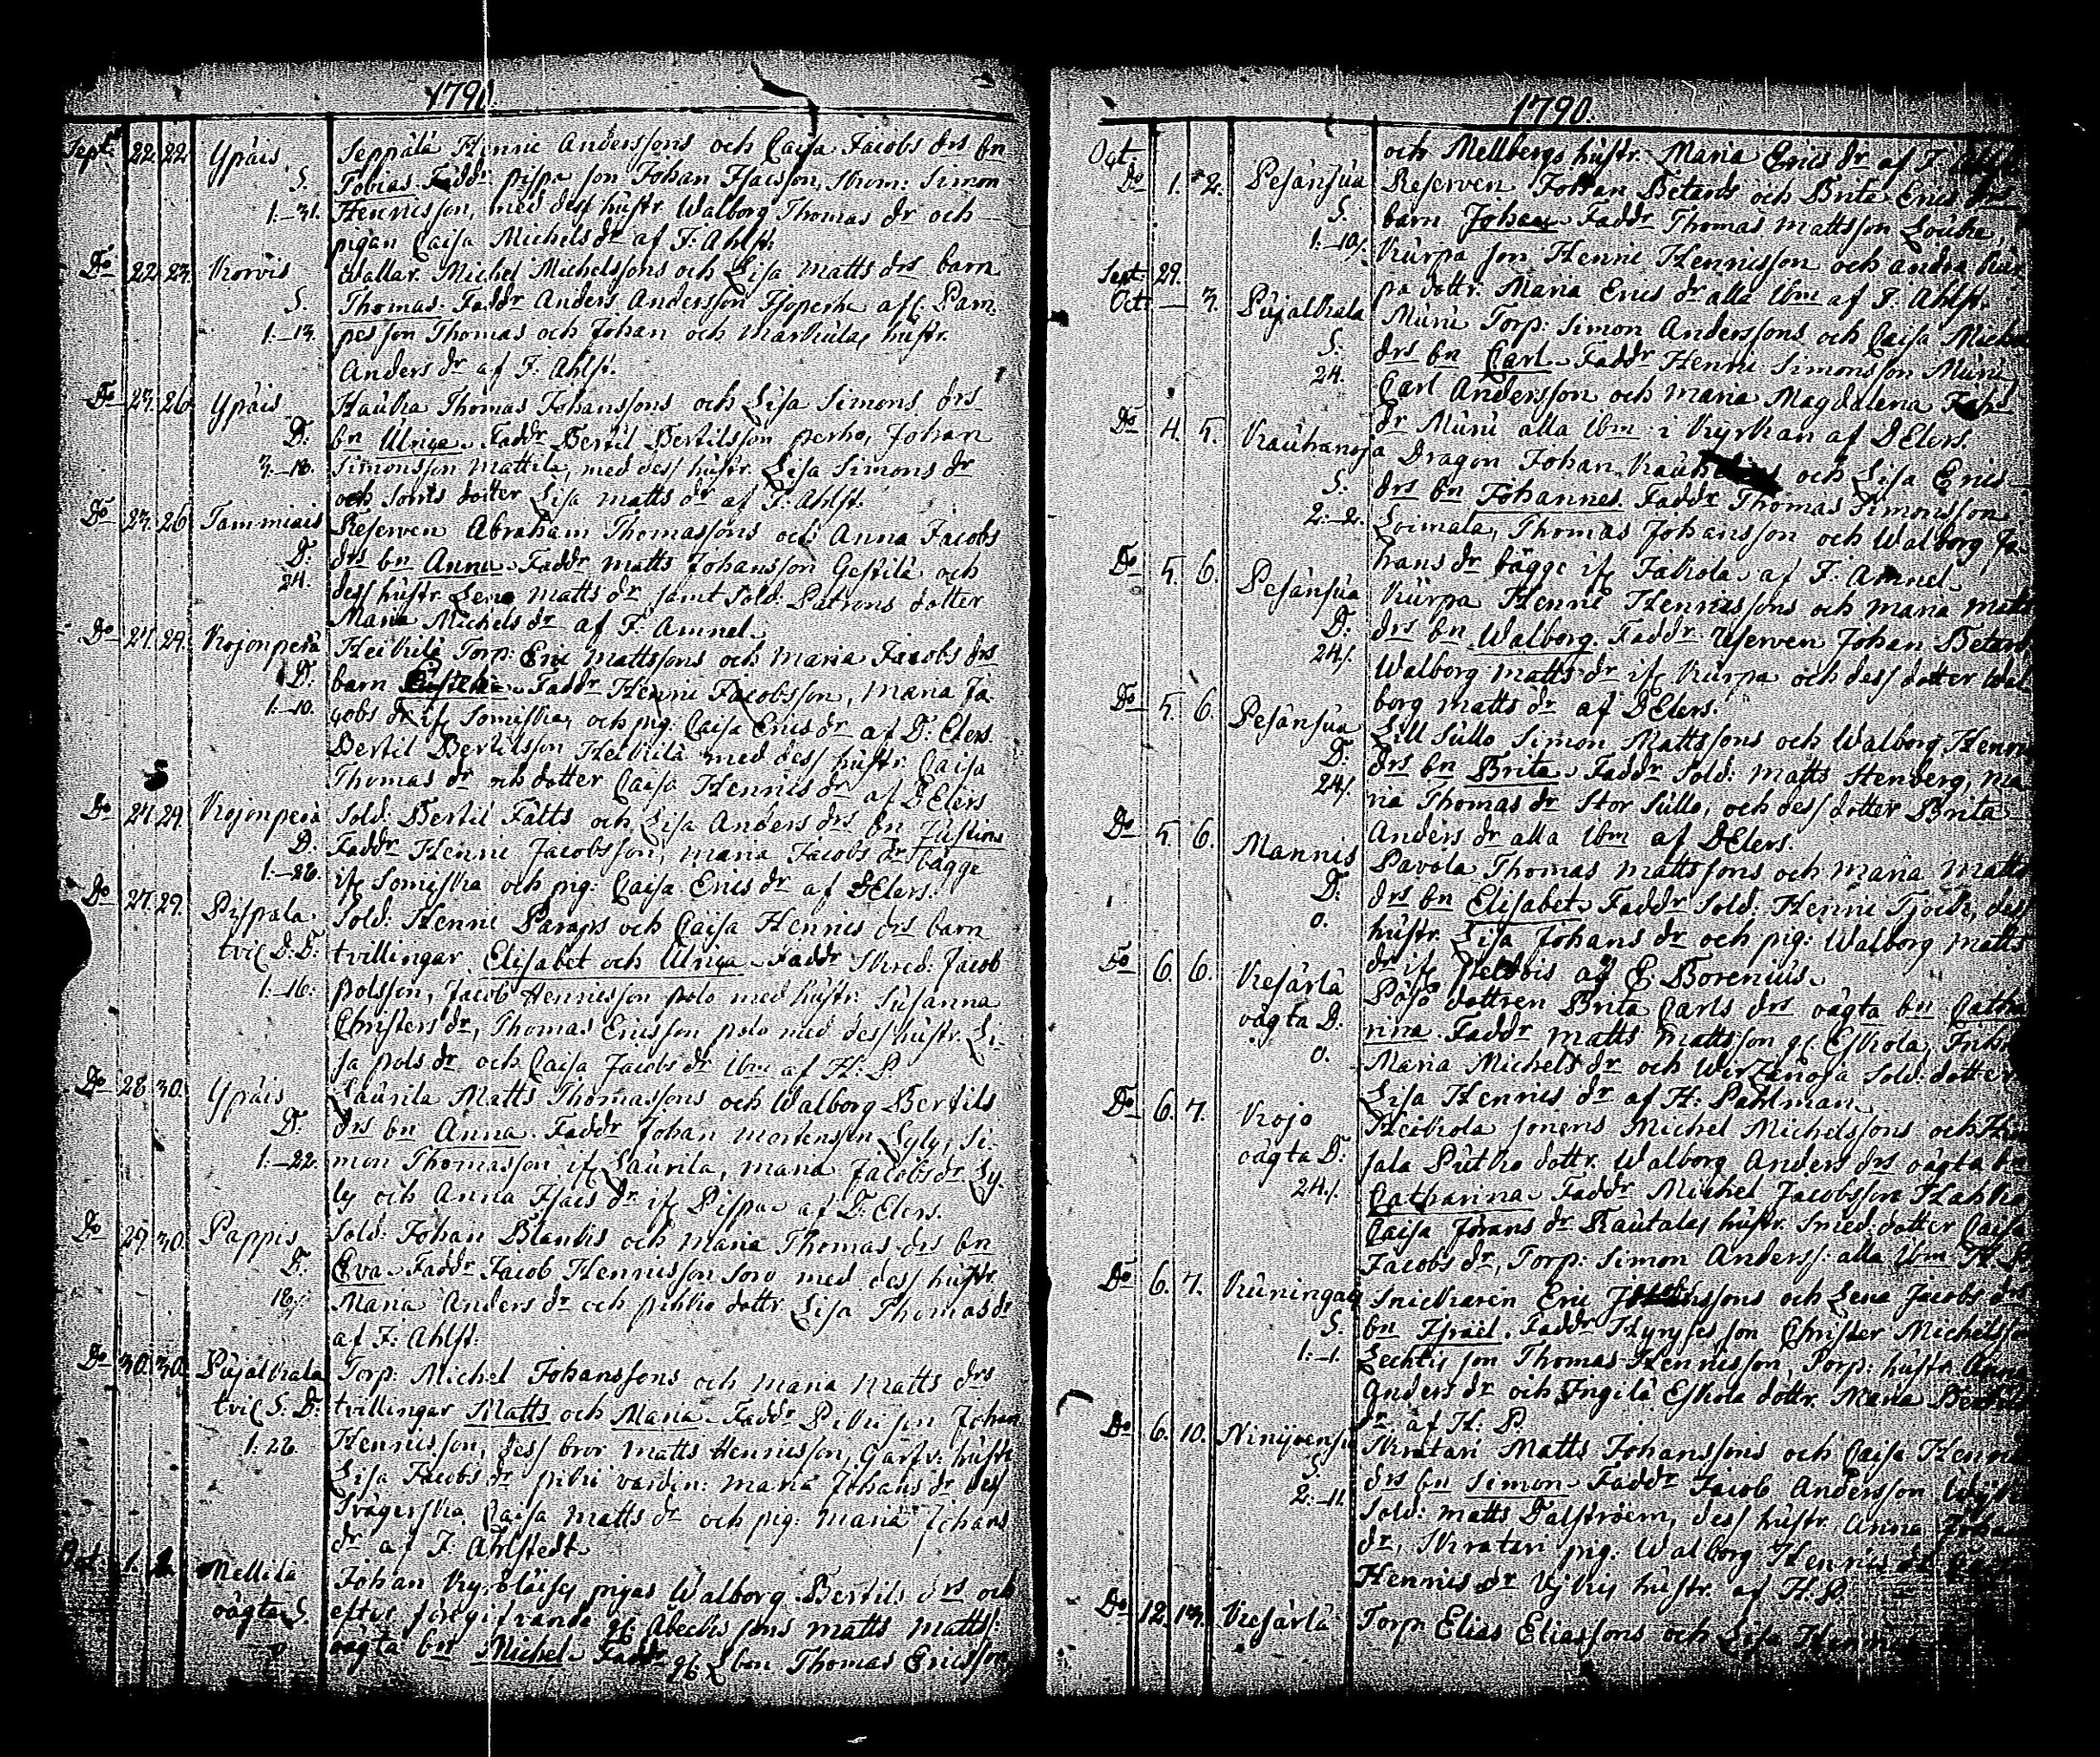 1790.
Sept. 22 22 Ypäis Seppälä Henric Anderssons och Caisa Jacobs drs bn
S. Tobias. Faddr pispa son Johan Isacsson, Skom: Simon
1.–31. Henricsson, med dess hustr. Walborg Thomas dr och
pigan Caisa Michels dr af F: Ahlst.
Do 22. 23. Korvis Wallar. Michel Michelssons och Lisa Matts drs barn
S. Thomas. Faddr Anders Andersson
1.–13. son Thomas och Johan och Markulas hustr.
Anders dr af F. Ahlst.
Do 23. 26 Ypäis Hauka Thomas Johanssons och Lisa Simons drs
D: bn Ulrica. Faddr Bertil Bertilsson perho, Johan
3.–18. Simonsson Mattila, med dess hustr. Lisa Simons dr
och dotter Lisa Matts dr af F. Ahlst.
Do 23. 26 Tammiais Reserven Abraham Thomassons och Anna Jacobs
D: drs bn Anna. Faddr Matts Johansson Gestilä och
24. dess hustr. Lena Matts dr samt Sold: Patrons dotter
Maria Michels dr af F. Amnel.
Do 27. 29. Kojonperä Heikilä Torp: Eric Mattssons och Maria Jacobs drs
D: barn Faddr Henric Jacobsson, Maria Ja-
1.–10. cobs dr if Somiska, och pig: Caisa Erics dr af D: Elers.
Bertil Bertilsson Heikilä med dess hustr. Caisa
Thomas dr och dotter Caisa Henrics dr af D Elers
Do 27. 29. Kojonperä Sold: Bertil Fälts och Lisa Anders drs bn Justina
D. Faddr Henric Jacobsson, Maria Jacobs dr bägge
1.–26. if Somiska och pig: Caisa Erics dr af D Elers.
Do 27. 29. Pispala Sold: Henric Pamps och Caisa Henrics drs barn
tvil D: D: tvillingar Elisabet och Ulrica. Faddr Skred: Jacob
1.–16: polsson, Jacob Henricsson polo med hustr. Susanna
Christers dr, Thomas Ericsson polo med dess hustr. Li-
sa pols dr och Caisa Jacobs dr ibm af H: P.
Do 28. 30. Ypäis Laurila Matts Thomassons och Walborg Bertils
D. drs bn Anna. Faddr Johan Mortensson Lyly, Si-
1.–22. mon Thomasson if Laurila, Maria Jacobs dr Ly-
ly och Anna Isacs dr if Pispa af D: Elers.
Do 29. 30. Pappis Sold: Johan Blanks och Maria Thomas drs bn
D. Eva. Faddr Jacob Henricsson Soro med dess hustr.
18/. Maria Anders dr och dottr Lisa Thomas dr
af F: Ahlst.
Do 30. 30. Pujalkala Torp: Michel Johanssons och Maria Matts drs
tvil S: D: tvillingar Matts och Maria. Faddr son Johan
1: 26. Henricsson, dess bror Matts Henricsson, hustr
Lisa Jacobs dr, Maria Johans dr dess
Svägerska Caisa Matts dr och pig: Maria Johans
dr af F. Ahlstedt.
Oct. 1. 2. Mellilä Johan pigas Walborg Bertils drs och
oägta S. efter föregifvande sons Matts Matts:
oägta bn Michel. Faddr Thomas Ericsson
1790.
Oct. och Mellbergs hustr. Maria Erics dr af F. Ahlst.
Do 1. 2. Pesänsua Reserven Johan Betards och Brita Erics drs
S. barn Johan. Faddr Thomas Mattsson
1.–10/. Kurpa son Henric Henricsson och andra Kur-
Sept. 29. pa dottr. Maria Erics dr alla ibm af F. Ahlst.
Oct. — 3. Pujalkala Muru Torp: Simon Anderssons och Caisa Michels
S. drs bn Carl. Faddr Henric Simonsson Muru
24. Carl Andersson och Maria Magdalena
dr Muru alla ibm i Kyrkan af D Elers.
Do 4. 5. Kauhanoja Dragon Johan och Lisa Erics
S. drs bn Johannes. Faddr Thomas Simonsson
2.–2. Loimala, Thomas Johansson och Walborg Jo-
hans dr bägge if Jakola af F. Amnel.
Do 5. 6. Pesänsua Kurpa Henric Henricssons och Maria Matts
D: drs bn Walborg. Faddr Reserven Johan Betard
24/. Walborg Matts dr if Kurpa och dess dotter Wal-
borg Matts dr af D Elers.
Do 5. 6. Pesänsua Lill Sullo Simon Mattssons och Walborg Henrics
D: drs bn Brita. Faddr Sold: Matts Stenberg, Ma-
24/. ria Thomas dr Stor Sullo, och dess dotter Brita
Anders dr alla ibm af D Elers.
Do 5. 6. Mannis Pavola Thomas Mattssons och Maria Matts
D: drs bn Elisabet. Faddr Sold: Henric dess
0. hustr. Lisa Johans dr och pig: Walborg Matts
dr if af E: Borenius.
Do 6. 6. Kesärlä dottren Brita Carls drs oägta bn Catha-
oägta D: rina. Faddr Matts Mattsson Eskola,
0. Maria Michels dr och Wirzanoja Sold: dotter
Lisa Henrics dr af H: Pahlman.
Do 6. 7. Kojo Heikola sonens Michel Michelssons och
oägta D: dottr. Walborg Anders drs oägta bn
24/. Catharina. Faddr Michel Jacobsson
Caisa Jörans dr Rautalas hustr. Smed. dotter Caisa
Jacobs dr, Torp: Simon Anderss: alla ibm H: P.
Do 6. 7. Kuningas Snickaren Eric och Lena Jacobs drs
S. bn Israël. Faddr son Christer Michelsson
1.–1. son Thomas Henricsson, Torp: hustr.
Anders dr och Ingilä Eskola dottr. Maria Bertils
dr af H: P.
Do 6. 10. Ninijoensu Skratari Matts Johanssons och Caisa Henrics
S. drs bn Simon. Faddr Jacob Andersson
2.–11. Sold: Matts Dalström, dess hustr. Anna Johans
dr, Skratari pig: Walborg Henrics dr
Henrics dr hustr. af H: P.
Do 12. 13. Kesärlä Torp: Elias Eliassons och Lisa